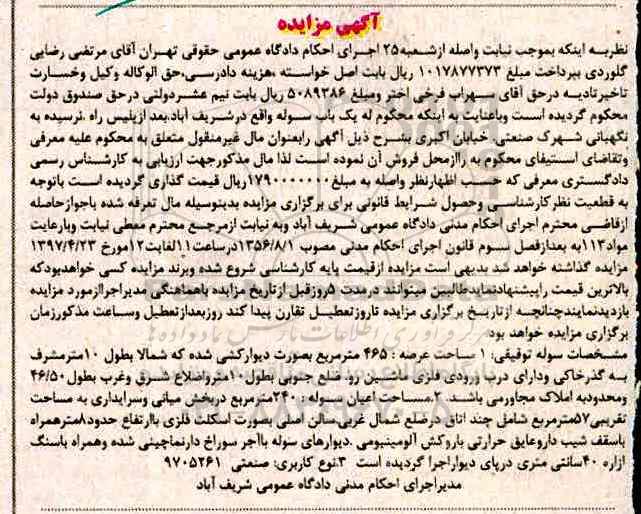 آگهی مزایده
نظربه اینکه بموجب نیابت واصله ازشعبه ۲۵ اجرای احکام دادگاه عمومی حقوقی تهران آقای مرتضی رضایی
گلوردی بپرداخت مبلغ ۱۰۱۷۸۷۷۳۷۳ ریال بابت اصل خواسته ،هزینه دادرسی،حق الوکاله وکیل وخسارت
تاخیرتادیه درحق آقای سهراب فرخی اختر ومبلغ ۵۰۸۹۳۸۶ ریال بابت نیم عشردولتی درحق صندوق دولت
محکوم گردیده است وباعنایت به اینکه محکوم له یک باب سوله واقع درشریف آباد،بعد ازپلیس راه ،نرسیده به
نگهبانی شهرک صنعتی، خیابان اکبری بشرح ذیل آگهی رابعنوان مال غیرمنقول متعلق به محکوم علیه معرفی
وتقاضای استیفای محکوم به راازمحل فروش آن نموده است لذا مال مذکورجهت ارزیابی به کارشناس رسمی
دادگستری معرفی که حسب اظهارنظر واصله به مبلغ۱۷۹۰۰۰۰۰۰۰ریال قیمت گذاری گردیده است باتوجه
به قطعیت نظرکارشناسی وحصول شرایط قانونی برای برگزاری مزایده بدینوسیله مال تعرفه شده باجوازحاصله
ازقاضی محترم اجرای احکام مدنی دادگاه عمومی شریف آباد وبه نیابت ازمرجع محترم معطی نیابت وبارعایت
مواد۱۱۳به بعدازفصل سوم قانون اجرای احکام مدنی مصوب ۱۳۵۶/۸/۱درساعت۱۱لغایت۱۲مورخ ۱۳۹۷/۴/۲۳
مزایده گذاشته خواهد شد بدیهی است مزایده ازقیمت پایه کارشناسی شروع شده وبرند مزایده کسی خواهدبودکه
بالاترین قیمت راپیشنهادنمایدطالبین میتوانند درمدت ۵روزقبل ازتاریخ مزایده باهماهنگی مدیراجراازمورد مزایده
بازدیدنمایندچنانچه ازتاریخ برگزاری مزایده تاروزتعطیل تقارن پیدا کند روزبعدازتعطیل وساعت مذکورزمان
برگزاری مزایده خواهد بود.
مشخصات سوله توقیفی: ۱ مساحت عرصه : ۴۶۵ مترمربع بصورت دیوارکشی شده که شمالا بطول ۱۰مترمشرف
به گذرخاکی ودارای درب ورودی فلزی ماشین رو، ضلع جنوبی بطول۱۰متر واضلاع شرق وغرب بطول۴۶/۵۰
ومحدودبه املاک مجاورمی باشد. ۲.مساحت اعیان سوله : ۲۴۰مترمربع دربخش میانی وسرایداری به مساحت
تقریبی۵۷مترمربع شامل چند اتاق درضلع شمال غربی،سالن اصلی بصورت اسکلت فلزی باارتفاع حدود۸مترهمراه
باسقف شیب داروعایق حرارتی باروکش آلومینیومی .دیوارهای سوله باآجر سوراخ دارنماچینی شده وهمراه باسنگ
ازاره ۴۰سانتی متری درپای دیواراجرا گردیده است ۳.نوع کاربری: صنعتی ۹۷۰۵۲۶۱
مدیراجرای احکام مدنی دادگاه عمومی شریف آباد